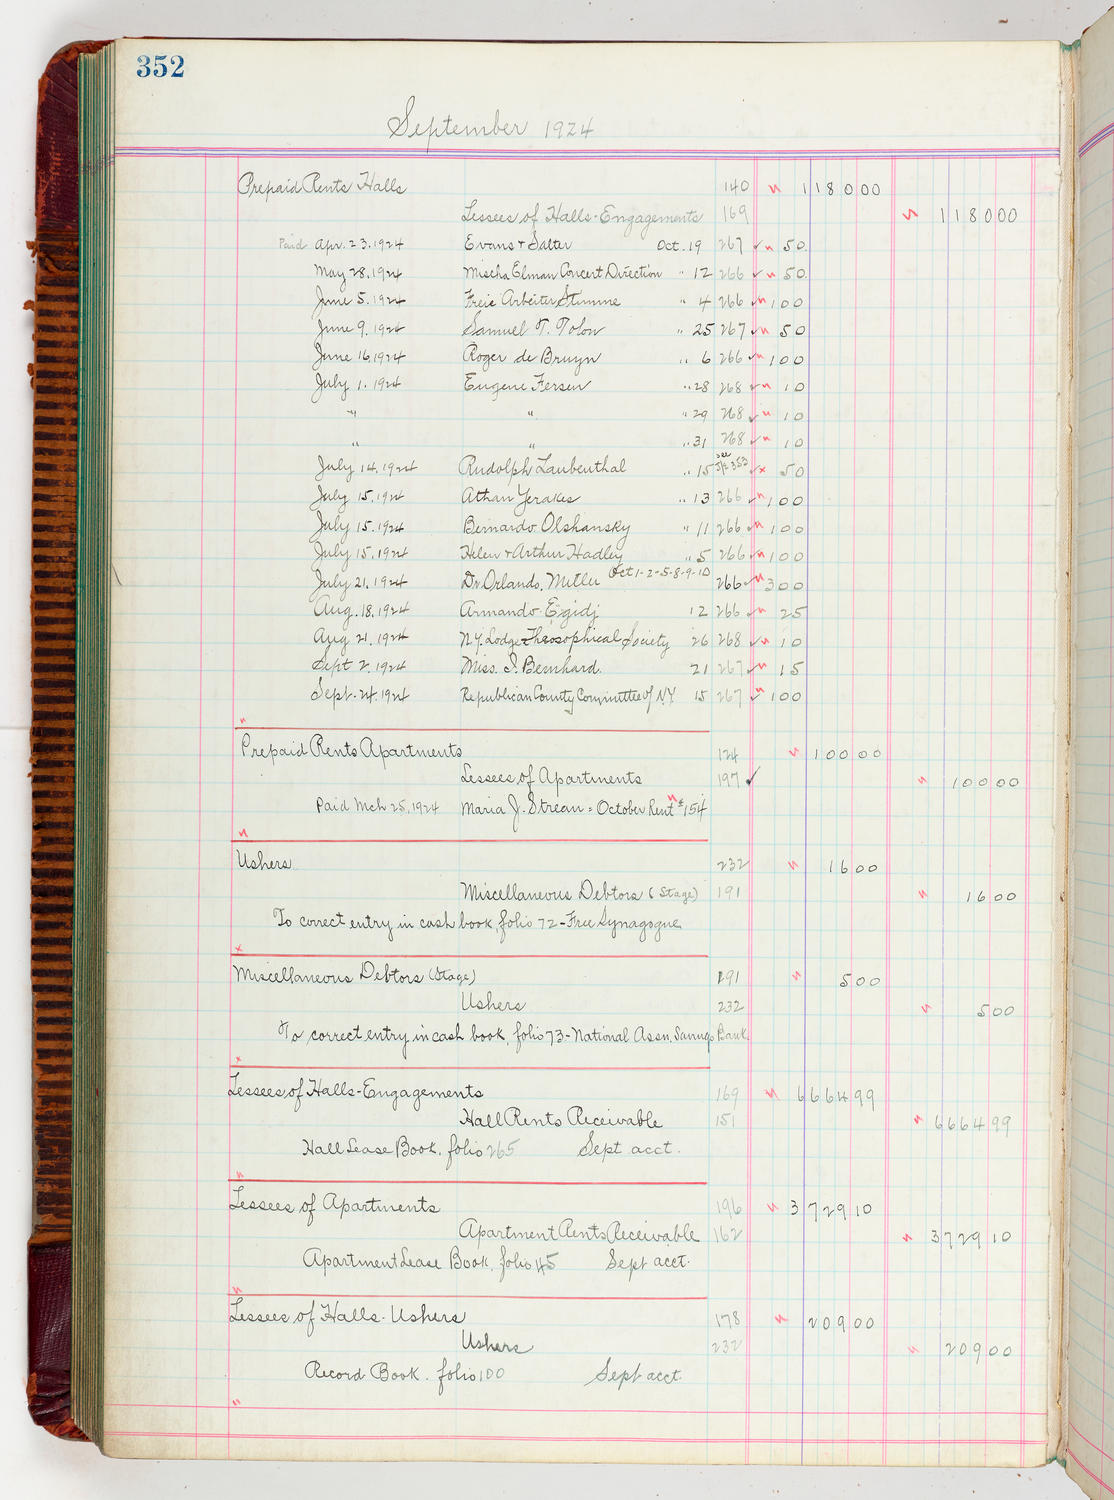 352
September 1924
Prepaid Rents Halls 140 118000
Lessees of Halls-Engagements 169 118000
Paid Apr. 23. 1924 Evans + Salter Oct. 19 267 50
May 28. 1924 Mischa Elman Concert Direction " 12 266 50
June 5. 1924 Freie Arbeiter Stimme " 4 266 100
June 9. 1924 Samuel T. Tolon " 25 267 50
June 16. 1924 Roger de Bruyn " 6 266 100
July 1. 1924 Eugene Fersen " 28 268 10
" " " 29 268 10
" " " 31 268 10
July 14. 1924 Rudolph Laubenthal " 15 see 353 50
July 15. 1924 Athan Yerakes " 13 266 100
July 15. 1924 Bernardo Olshansky " 11 266 100
July 15. 1924 Helen + Arthur Hadley " 5 266 100
July 21. 1924 Dr. Orlando. Oct 1-2-5-8-9-10 266 300
Aug. 18. 1924 Armando Egidj 12 266 25
Aug 21. 1924 N.Y. Lodge Theosophical Society 26 268 10
Sept 2. 1924 Miss. I. Bernhard. 21 267 15
Sept. 24. 1924 Republican County Committee of N.Y. 15 267 100
Prepaid Rents Apartments 124 10000
Lessees of Apartments 197 10000
Paid Mch 25. 1924 Maria J. Strean = October Rent #154
Ushers 232 1600
Miscellaneous Debtors (Stage) 191 1600
To correct entry in cash book, folio 72 - Free Synagogue
Miscellaneous Debtors (Stage) 191 500
Ushers 232 500
To correct entry in cash book, folio 73 - National Assn. Savings Bank
Lessees of Halls-Engagements 169 666499
Hall Rents Receivable 151 666499
Hall Lease Book. folio 265 Sept acct.
Lessees of Apartments 196 372910
Apartment Rents Receivable 162 372910
Apartment Lease Book, folio 45 Sept acct.
Lessees of Halls. Ushers 178 20900
Ushers 232 20900
Record Book. folio 100 Sept acct.